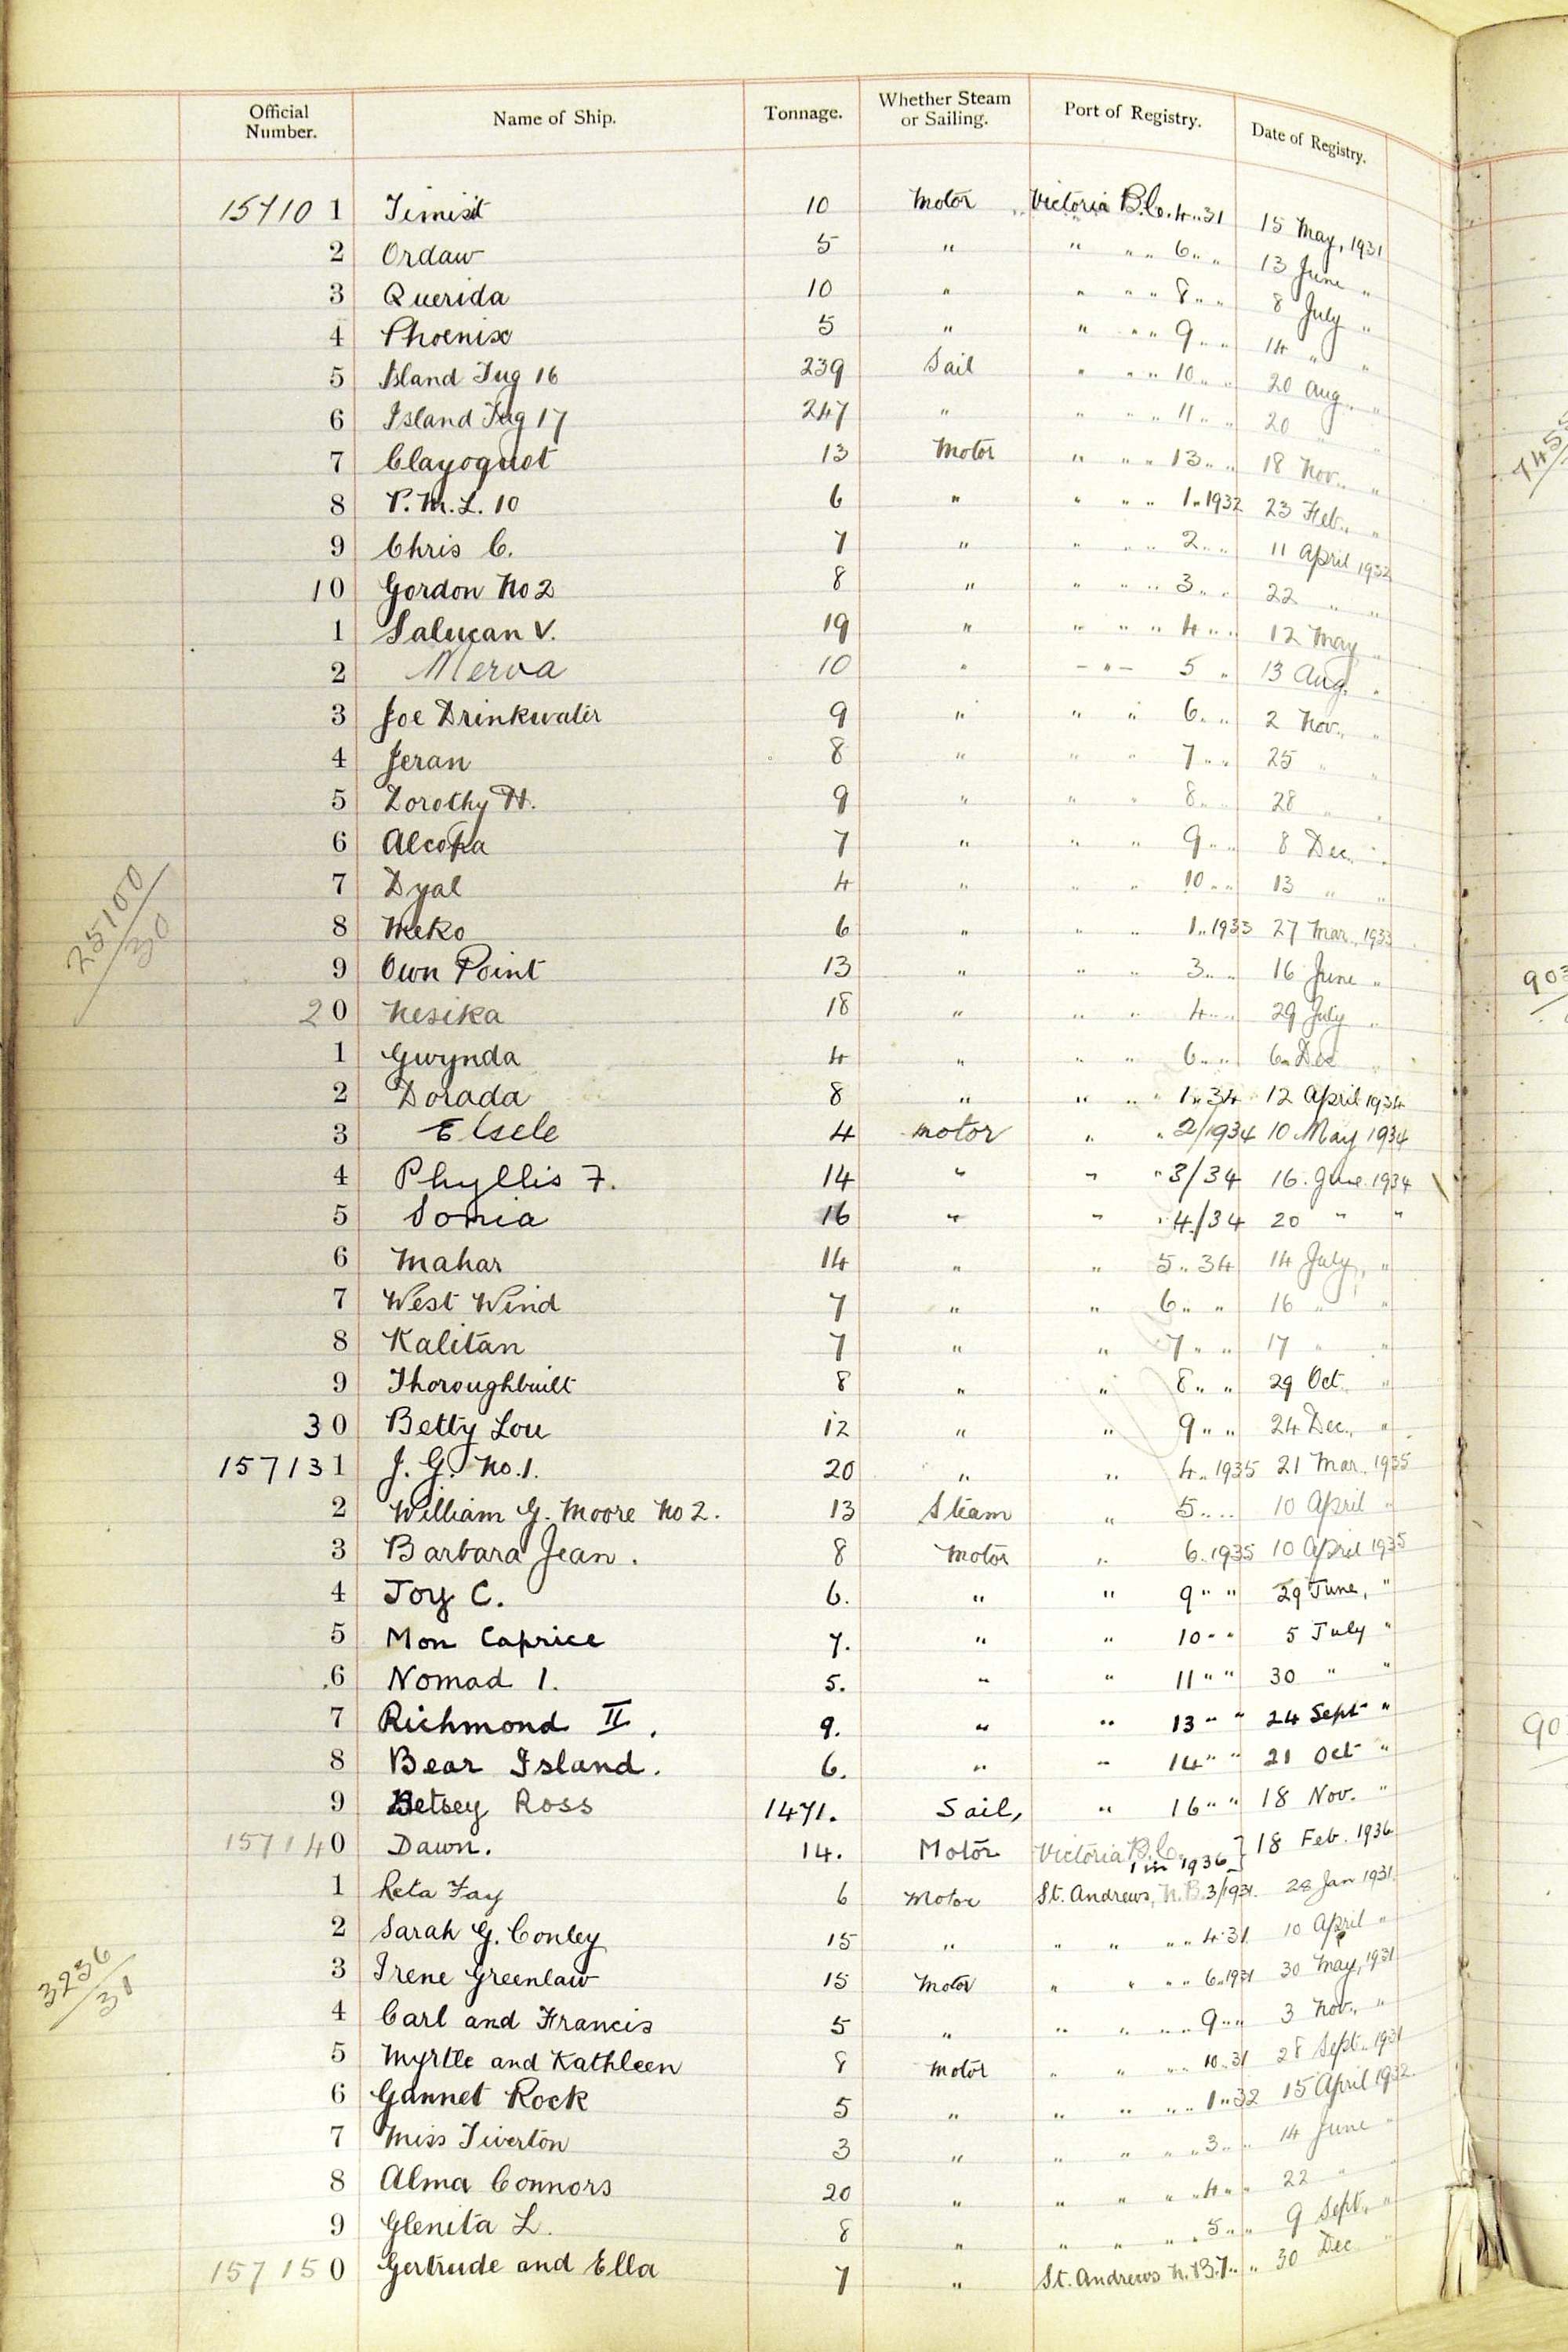 Official Number. Name of Ship. Tonnage. Whether Steam or Sailing. Port of Registry. Date of Registry.
157101 Timist 10 Motor Victoria B.C. 4..31 15 May, 1931
2 Ordaw 5 " " " " 6 " " 13 June "
3 Querida 10 " " " " 8 " " 8 July "
4 Phoenix 5 " " " " 9 " " 14 " "
5 Island Tug 16 239 Sail " " " 10 " " 20 Aug. "
6 Island Tug 17 247 " " " " 11 " " 20 " "
7 Clayoquot 13 Motor " " " 13 " " 18 Nov. "
8 P.M.L. 10 6 " " " " 1..1932 23 Feb. "
9 Chris C. 7 " " " " 2 " " 11 April 1932
10 Gordon No 2 8 " " " " 3 " " 22 " "
1 Salucan V. 19 " " " " 4 " " 12 May "
2 Merva 10 " - " - 5 " 13 Aug. "
3 Joe Drinkwater 9 " " " 6 " " 2 Nov. "
4 Jeran 8 " " " 7 " " 25 " "
5 Dorothy H. 9 " " " 8 " " 28 " "
6 Alcoka 7 " " " 9 " " 8 Dec. "
7 Dyal 4 " " " 10 " " 13 " "
25100/30
8 Meko 6 " " " 1..1933 27 Mar., 1933
9 Own Point 13 " " " 3 " " 16 June "
20 Nesika 18 " " " 4 " " 29 July "
1 Gwynda 4 " " " 6 " " 6 Dec "
2 Dorada 8 " " " 1..34 12 April 1934
3 Elsele 4 motor " " 2/1934 10 May 1934
4 Phyllis F. 14 " " " 3/34 16. June. 1934
5 Sonia 16 " " " 4/34 20 " "
6 Mahar 14 " " 5..34 14 July, "
7 West Wind 7 " " 6 " " 16 " "
8 Kalitan 7 " " 7 " " 17 " "
9 Thoroughbuilt 8 " " 8 " " 29 Oct. "
30 Betty Lou 12 " " 9 " " 24 Dec., "
157131 J. G. No. 1. 20 " " 4..1935 21 Mar. 1935
2 William G. Moore No 2. 13 Steam " 5 " " 10 April "
3 Barbara Jean. 8 Motor " 6..1935 10 April 1935
4 Joy C. 6. " " 9 " " 29 June, "
5 Mon Caprice 7. " " 10 " " 5 July "
6 Nomad 1. 5. " " 11 " " 30 " "
7 Richmond II. 9. " " 13 " " 24 Sept "
8 Bear Island. 6. " " 14 " " 21 Oct "
9 Betsey Ross 1471. Sail, " 16 " " 18 Nov. "
157140 Dawn. 14. Motor Victoria B.C. 1 in 1936 } 18 Feb. 1936
1 Reta Fay 6 Motor St. Andrews, N.B. 3/1931. 28 Jan 1931
2 Sarah G. Conley 15 " " " " " 4.31 10 April "
3 Irene Greenlaw 15 Motor " " " " 6..1931 30 May, 1931
3236/31
4 Carl and Francis 5 " " " " " 9 " " 3 Nov., "
5 Myrtle and Kathleen 8 Motor " " " " 10..31 28 Sept. 1931
6 Gannet Rock 5 " " " " " 1..32 15 April 1932.
7 Miss Tiverton 3 " " " " " 3 " " 14 June "
8 Alma Connors 20 " " " " " 4 " " 22 " "
9 Glenita L. 8 " " " " " 5 " " 9 Sept., "
157150 Gertrude and Ella 7 " St. Andrews N.B. 7 " " 30 Dec "